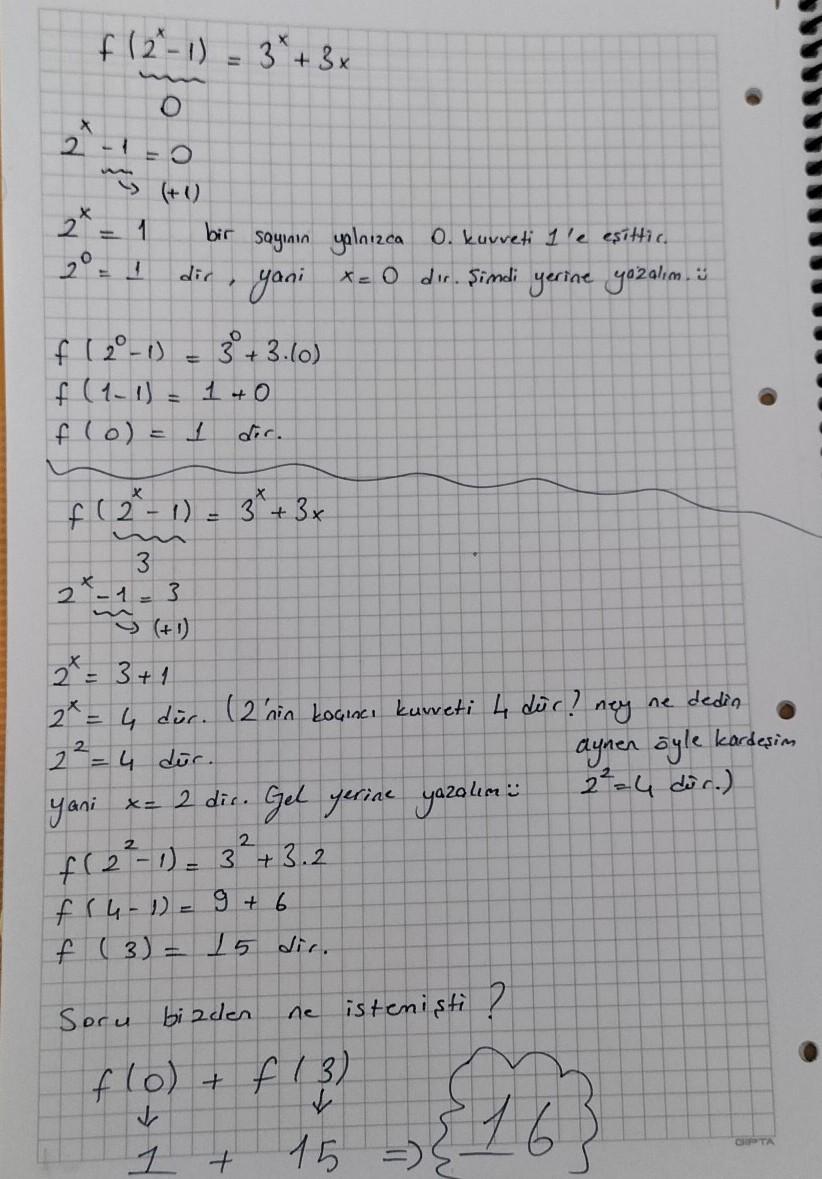 f(2ˣ-1) = 3ˣ + 3x
0
2ˣ -1 = 0
(+1)
2ˣ = 1 bir sayının yalnızca 0. kuvveti 1'e eşittir.
2⁰ = 1 dir, yani x = 0 dır. Şimdi yerine yazalım. ü
f(2⁰-1) = 3⁰ + 3.(0)
f(1-1) = 1 + 0
f(0) = 1 dir.
f(2ˣ-1) = 3ˣ + 3x
3
2ˣ -1 = 3
(+1)
2ˣ = 3+1
2ˣ = 4 dür. (2'nin kaçıncı kuvveti 4 dür? ney ne dedin
aynen öyle kardeşim
2² = 4 dür.
2² = 4 dür.)
yani x = 2 dir. Gel yerine yazalım ü
f(2²-1) = 3² + 3.2
f(4-1) = 9 + 6
f(3) = 15 dir.
Soru bizden ne istemişti?
f(0) + f(3)
↓ ↓
1 + 15 => {16}
GIPTA